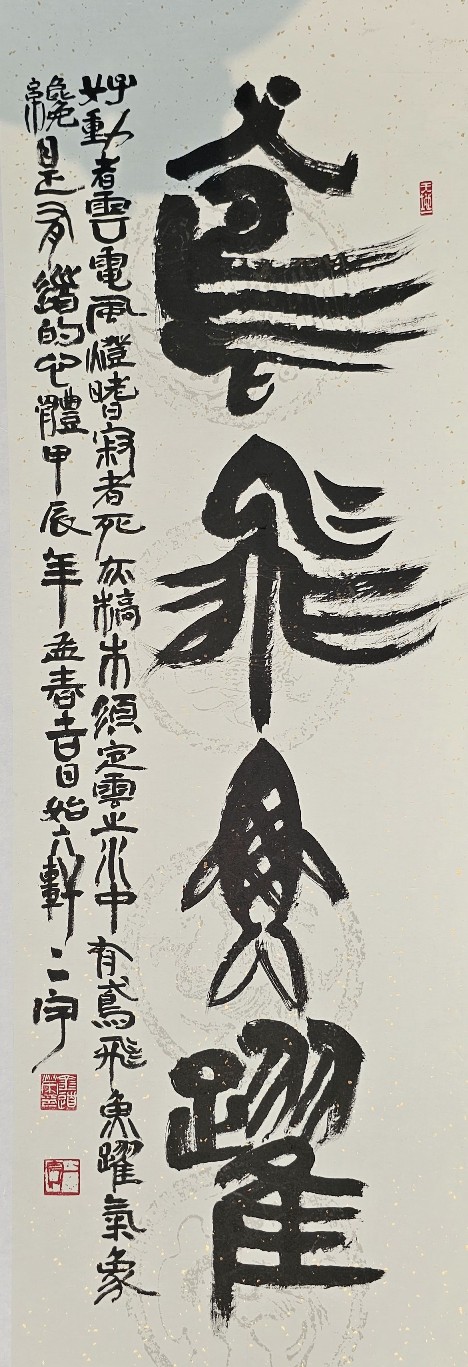 鳶飛魚躍
好動者雲電風燈嗜寂者死灰槁木須定雲止水中有鳶飛魚躍氣象
纔是有道的心體甲辰年孟春吉日始六軒